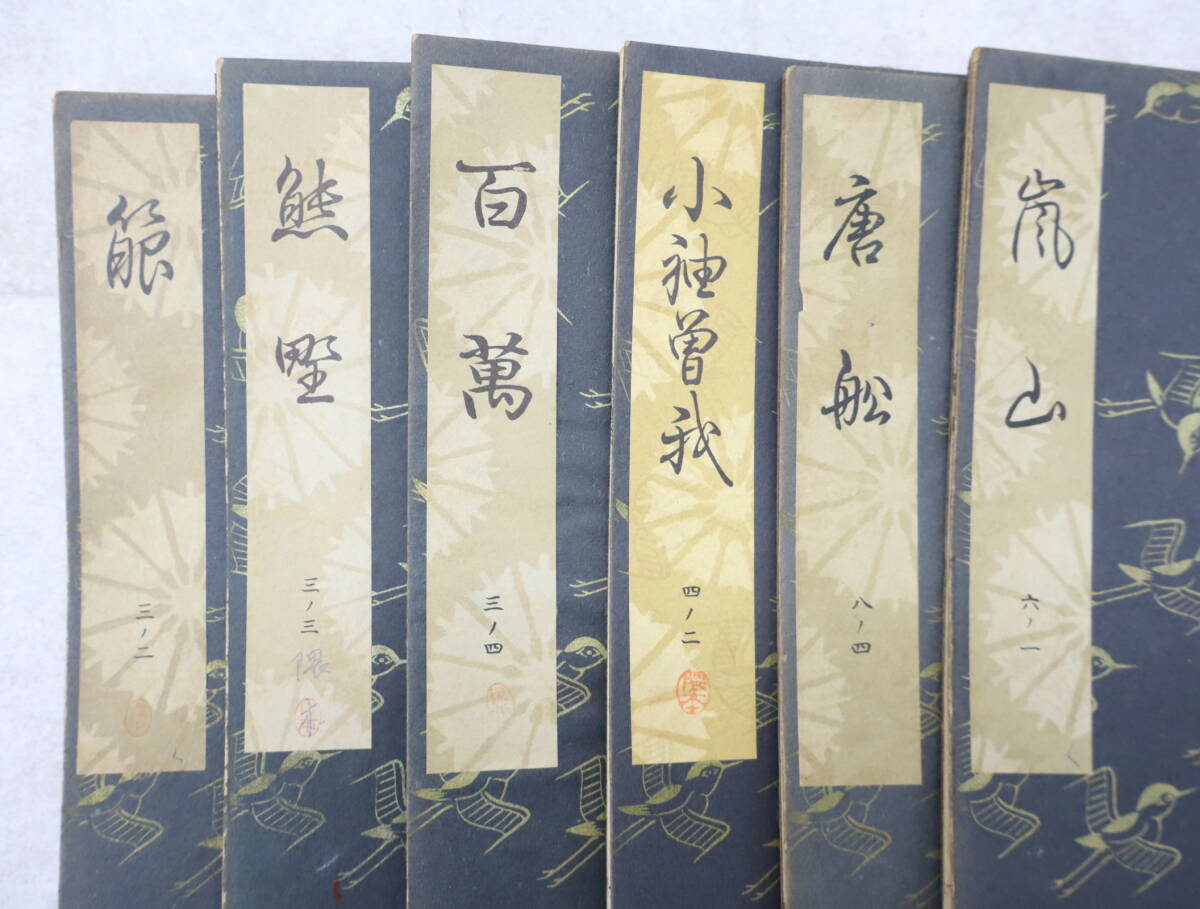 箙
三ノ二
熊野
三ノ三
隈
本
百萬
三ノ四
小袖曽我
四ノ二
隈本
唐舩
八ノ四
嵐山
六ノ一